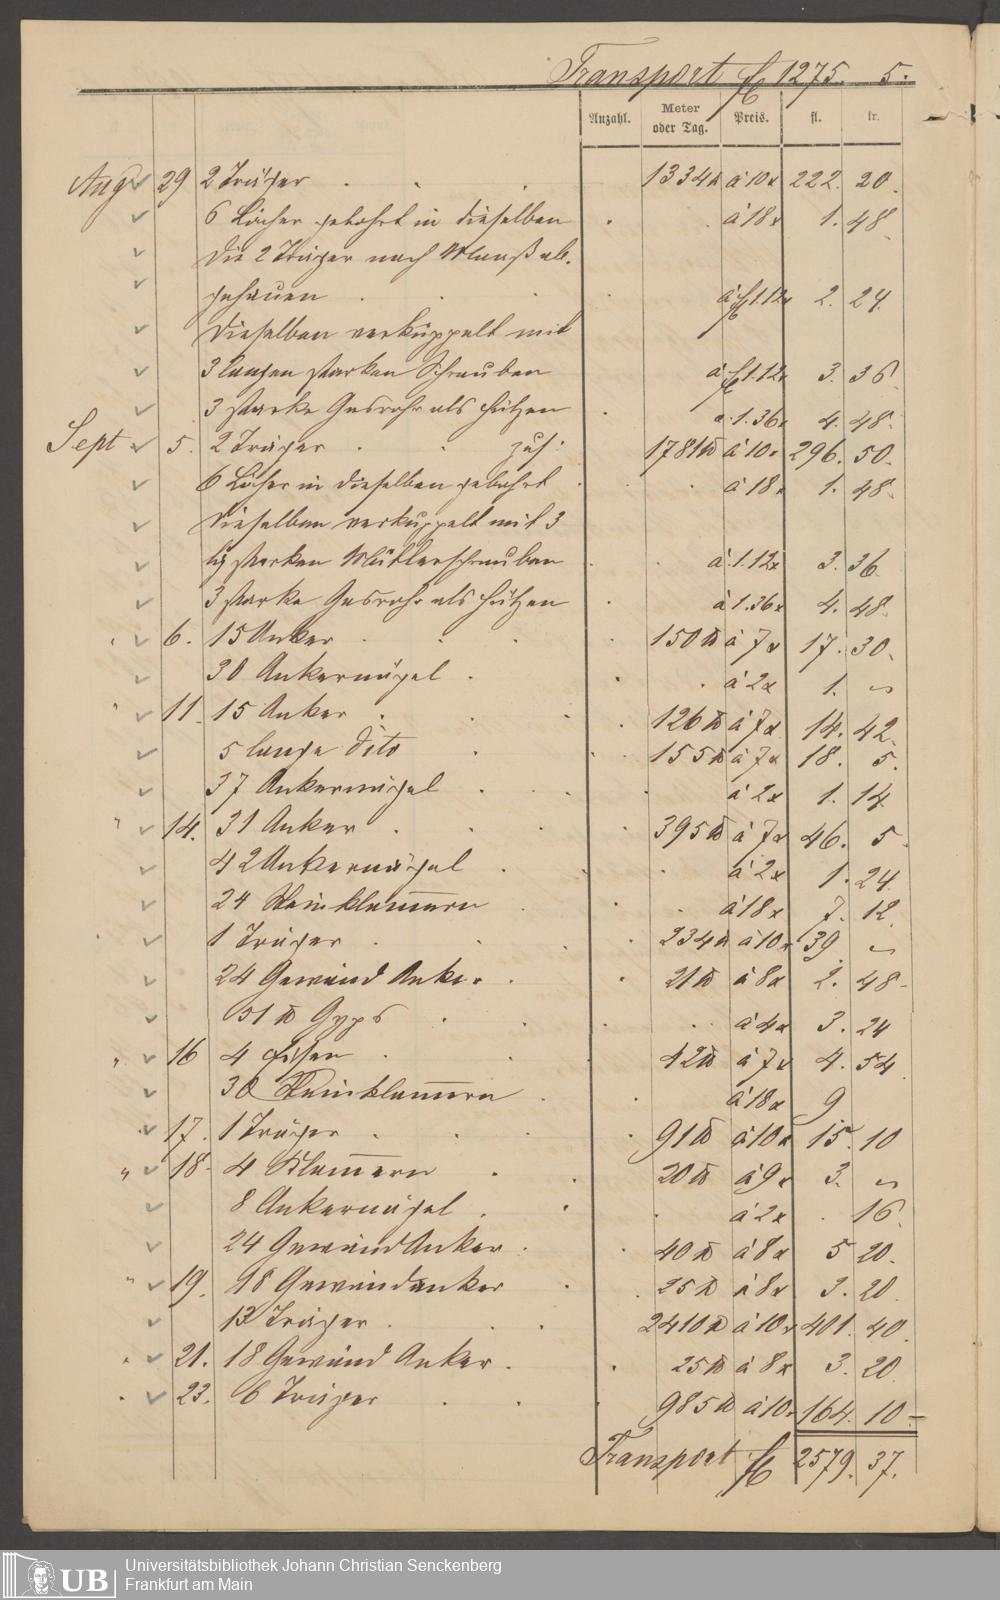 Transport fl 1275. 5.
Anzahl. Meter oder Tag. Preis. fl. kr.
Aug 29 2 Träger . . . 1334 ℔ à 10 x 222. 20.
6 Löcher gebohrt in dieselben . . à 18 x 1. 48
Die 2 Träger nach Maaß ab-
gehauen . . . . à fl 1.12x 2. 24.
Dieselben verkuppelt mit
3 langen starken Schrauben à fl 1.12x 3. 36
3 starke Gasrohr als Hülsen . à 1.36x 4. 48.
Sept 5. 2 Träger . . zus: 1781 ℔ à 10 x 296. 50.
6 Löcher in dieselben gebohrt . . . à 18 x 1. 48
Dieselben verkuppelt mit 3
starken Mutterschrauben . . à 1.12x 3. 36.
3 starke Gasrohr als Hülsen . à 1.36x 4. 48.
" 6. 15 Anker . . . . 150 ℔ à 7 x 17. 30.
30 Ankernägel . . . à 2x 1. ~
" 11. 15 Anker . . . . 126 ℔ à 7x 14. 42.
5 lange dito . . 155 ℔ à 7x 18. 5.
37 Ankernägel . . . à 2x 1. 14.
" 14. 31 Anker . . . . 395 ℔ à 7x 46. 5
42 Ankernägel . . . à 2x 1. 24.
24 Steinklam̅ern . . . à 18 x 7. 12
1 Träger . . . . 234 ℔ à 10x 39. ~
24 Gewänd Anker . . 21 ℔ à 8x 2. 48-
51 ℔ Gyps . . . à 4x 3. 24
" 16 4 Eisen . . . 42 ℔ à 7x 4. 54
30 Steinklam̅ern . . à 18x 9
" 17. 1 Träger . . . . 91 ℔ à 10x 15. 10
" 18. 4 Klam̅ern . . 20 ℔ à 9x 3. ~
8 Ankernägel . . . à 2x . 16.
24 Gewändanker . . 40 ℔ à 8x 5 20.
" 19. 18 Gewändanker . . 25 ℔ à 8x 3. 20.
13 Träger . . . 2410 ℔ à 10x 401. 40.
" 21. 18 Gewänd Anker . . 25 ℔ à 8x 3. 20.
" 23. 6 Träger . . . 985 ℔ à 10x 164. 10-
Transport fl 2579. 37.
UB Universitätsbibliothek Johann Christian Senckenberg
Frankfurt am Main